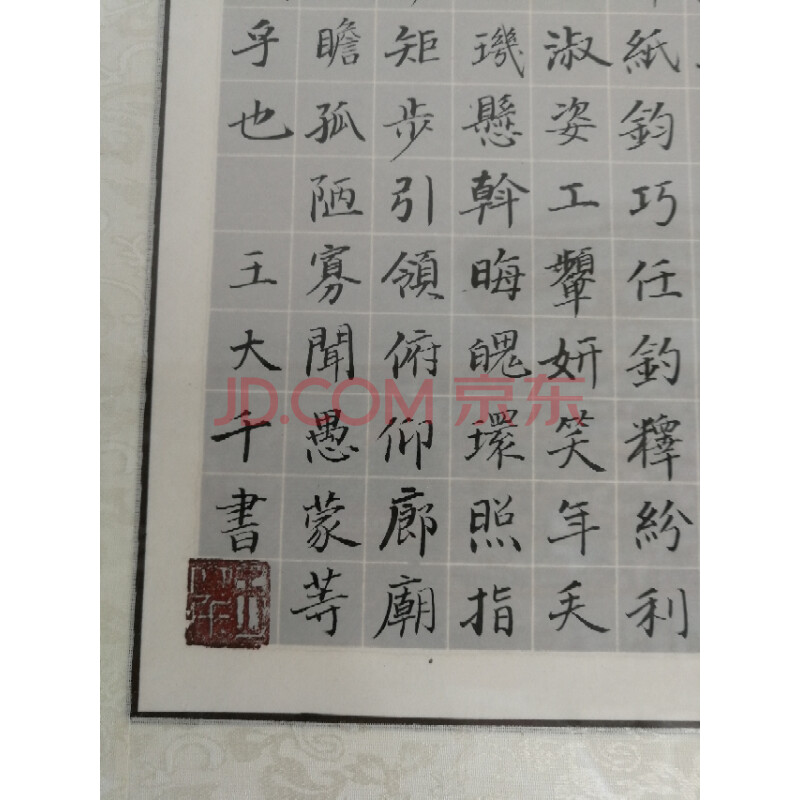 紙鈞巧任釣釋紛利
淑姿工顰妍笑年矢
璣懸斡晦魄環照指
矩步引領俯仰廊廟
瞻孤陋寡聞愚蒙等
乎也 王大千書
JD.COM 京东